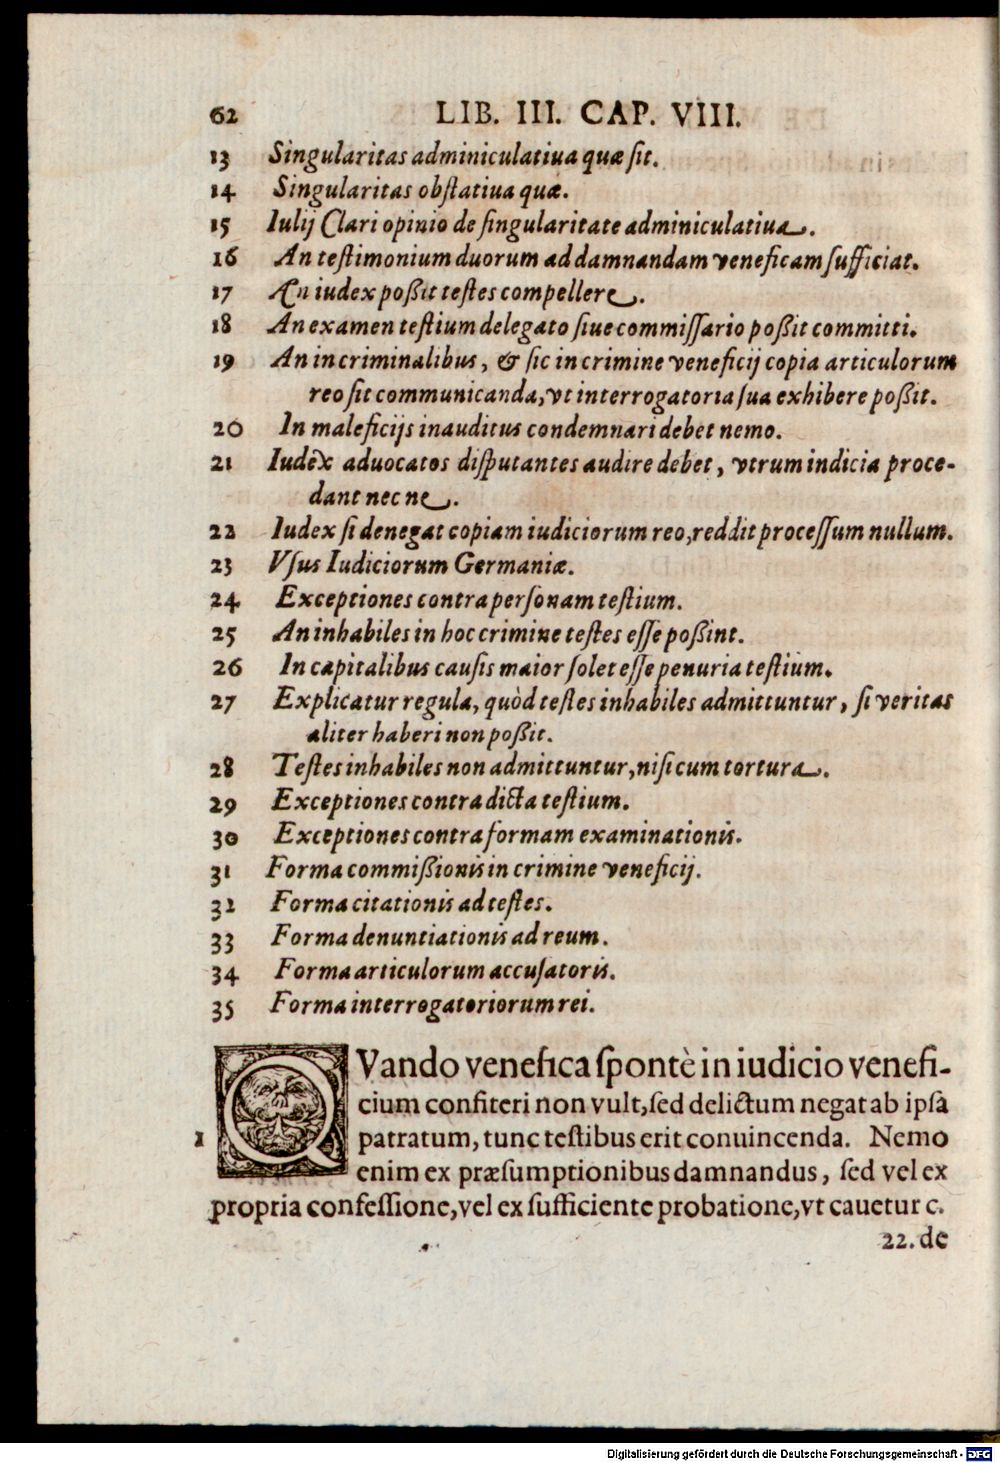 62 LIB. III. CAP. VIII.
13 Singularitas adminiculatiua quæ ſit.
14 Singularitas obſtatiua quæ.
15 Iulij Clari opinio de ſingularitate adminiculatiua.
16 An teſtimonium duorum ad damnandam veneficam ſufficiat.
17 An iudex poßit teſtes compellere.
18 An examen teſtium delegato ſiue commiſſario poßit committi.
19 An in criminalibus, & ſic in crimine veneficij copia articulorum
reo ſit communicanda, vt interrogatoria ſua exhibere poßit.
20 In maleficijs inauditus condemnari debet nemo.
21 Iudex aduocatos diſputantes audire debet, vtrum indicia proce-
dant nec ne.
22 Iudex ſi denegat copiam iudiciorum reo, reddit proceſſum nullum.
23 Vſus Iudiciorum Germaniæ.
24 Exceptiones contra perſonam teſtium.
25 An inhabiles in hoc crimine teſtes eſſe poßint.
26 In capitalibus cauſis maior ſolet eſſe penuria teſtium.
27 Explicatur regula, quòd teſtes inhabiles admittuntur, ſi veritas
aliter haberi non poßit.
28 Teſtes inhabiles non admittuntur, niſi cum tortura.
29 Exceptiones contra dicta teſtium.
30 Exceptiones contra formam examinationis.
31 Forma commißionis in crimine veneficij.
32 Forma citationis ad teſtes.
33 Forma denuntiationis ad reum.
34 Forma articulorum accuſatoris.
35 Forma interrogatoriorum rei.
QVando venefica ſpontè in iudicio venefi-
cium confiteri non vult, ſed delictum negat ab ipſà
1 patratum, tunc teſtibus erit conuincenda. Nemo
enim ex præſumptionibus damnandus, ſed vel ex
propria confeſſione, vel ex ſufficiente probatione, vt cauetur c.
22. de
Digitalisierung gefördert durch die Deutsche Forschungsgemeinschaft - DFG